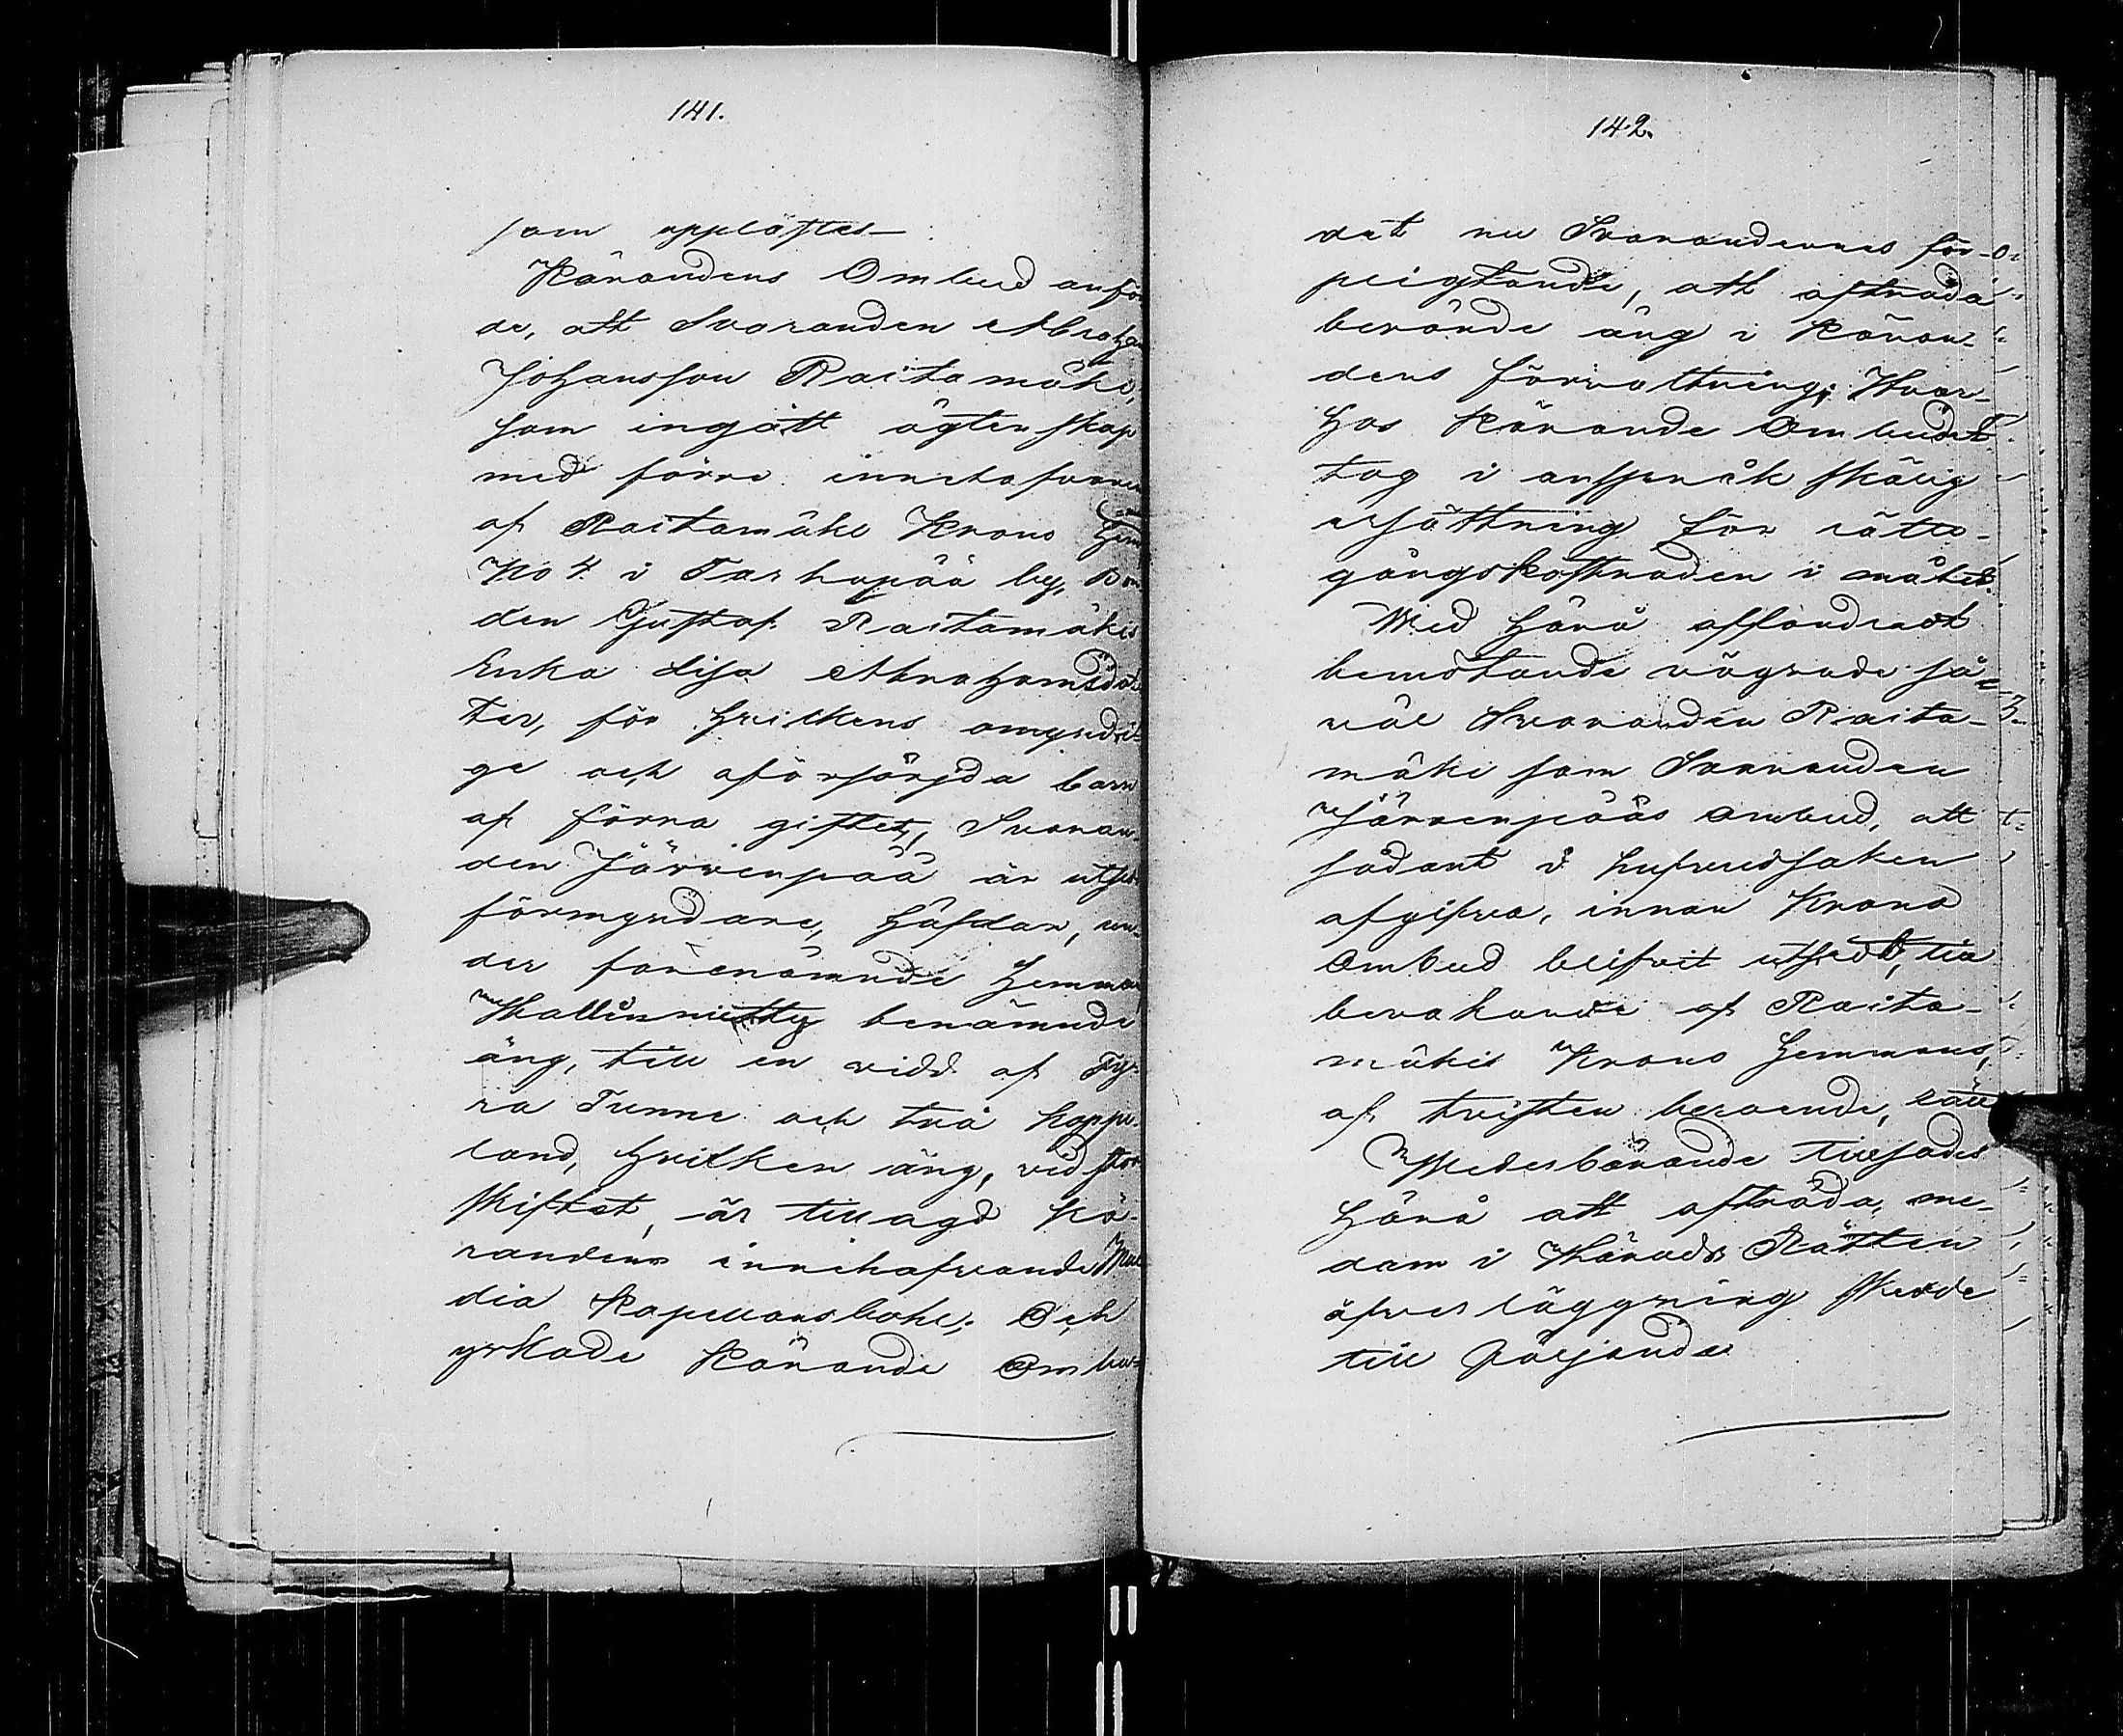 141.
som upplästes.
Kärandens Ombud anför
de, att Svaranden Abraham
Johansson Raitamäki,
som ingått ägtenskap
med förra innehafvaren
af Raitamäki Krono Hem
No 4 i Tarhapää by, Bon
den Gustaf Raitamäkis
Enka Lisa Abrahamsdot
ter, för hvilkens omyndi-
ge och oförsörjda barn
af förra giftet, Svaran-
den Järvenpää är utsedd
förmyndare, häfdar, un-
der förenämnde Hemman,
Wallinniitty benämnde
äng, till en vidd af Fy-
ra Tunne och två kapp-
land, hvilken äng, vid stor
skiftet, är tillagd Kä-
randens innehafvande
dia Kapellansbohl; Och
yrkade Kärande Ombu-
142.
det nu Svarandernes för-
pligtande, att afträda
berörde äng i Käran-
dens förvaltning; Hvar-
hos Kärande Ombudet
tog i anspråk skälig
ersättning för rätte-
gångskostnaden i målet.
Med härå affordradt
bemötande vägrade så-
väl Svaranden Raita-
mäki som Svaranden
Järvenpääs Ombud, att
sådant i hufvudsaken
afgifva, innan Krono
Ombud blifvit utsedt, till
bevakande af Raita-
mäkis Krono Hemmans,
af tvisten beroende, rätt
Wederbörande tillsades
härå att afträda, me-
dan i Härads Rätten
öfverläggning skedde
till följande